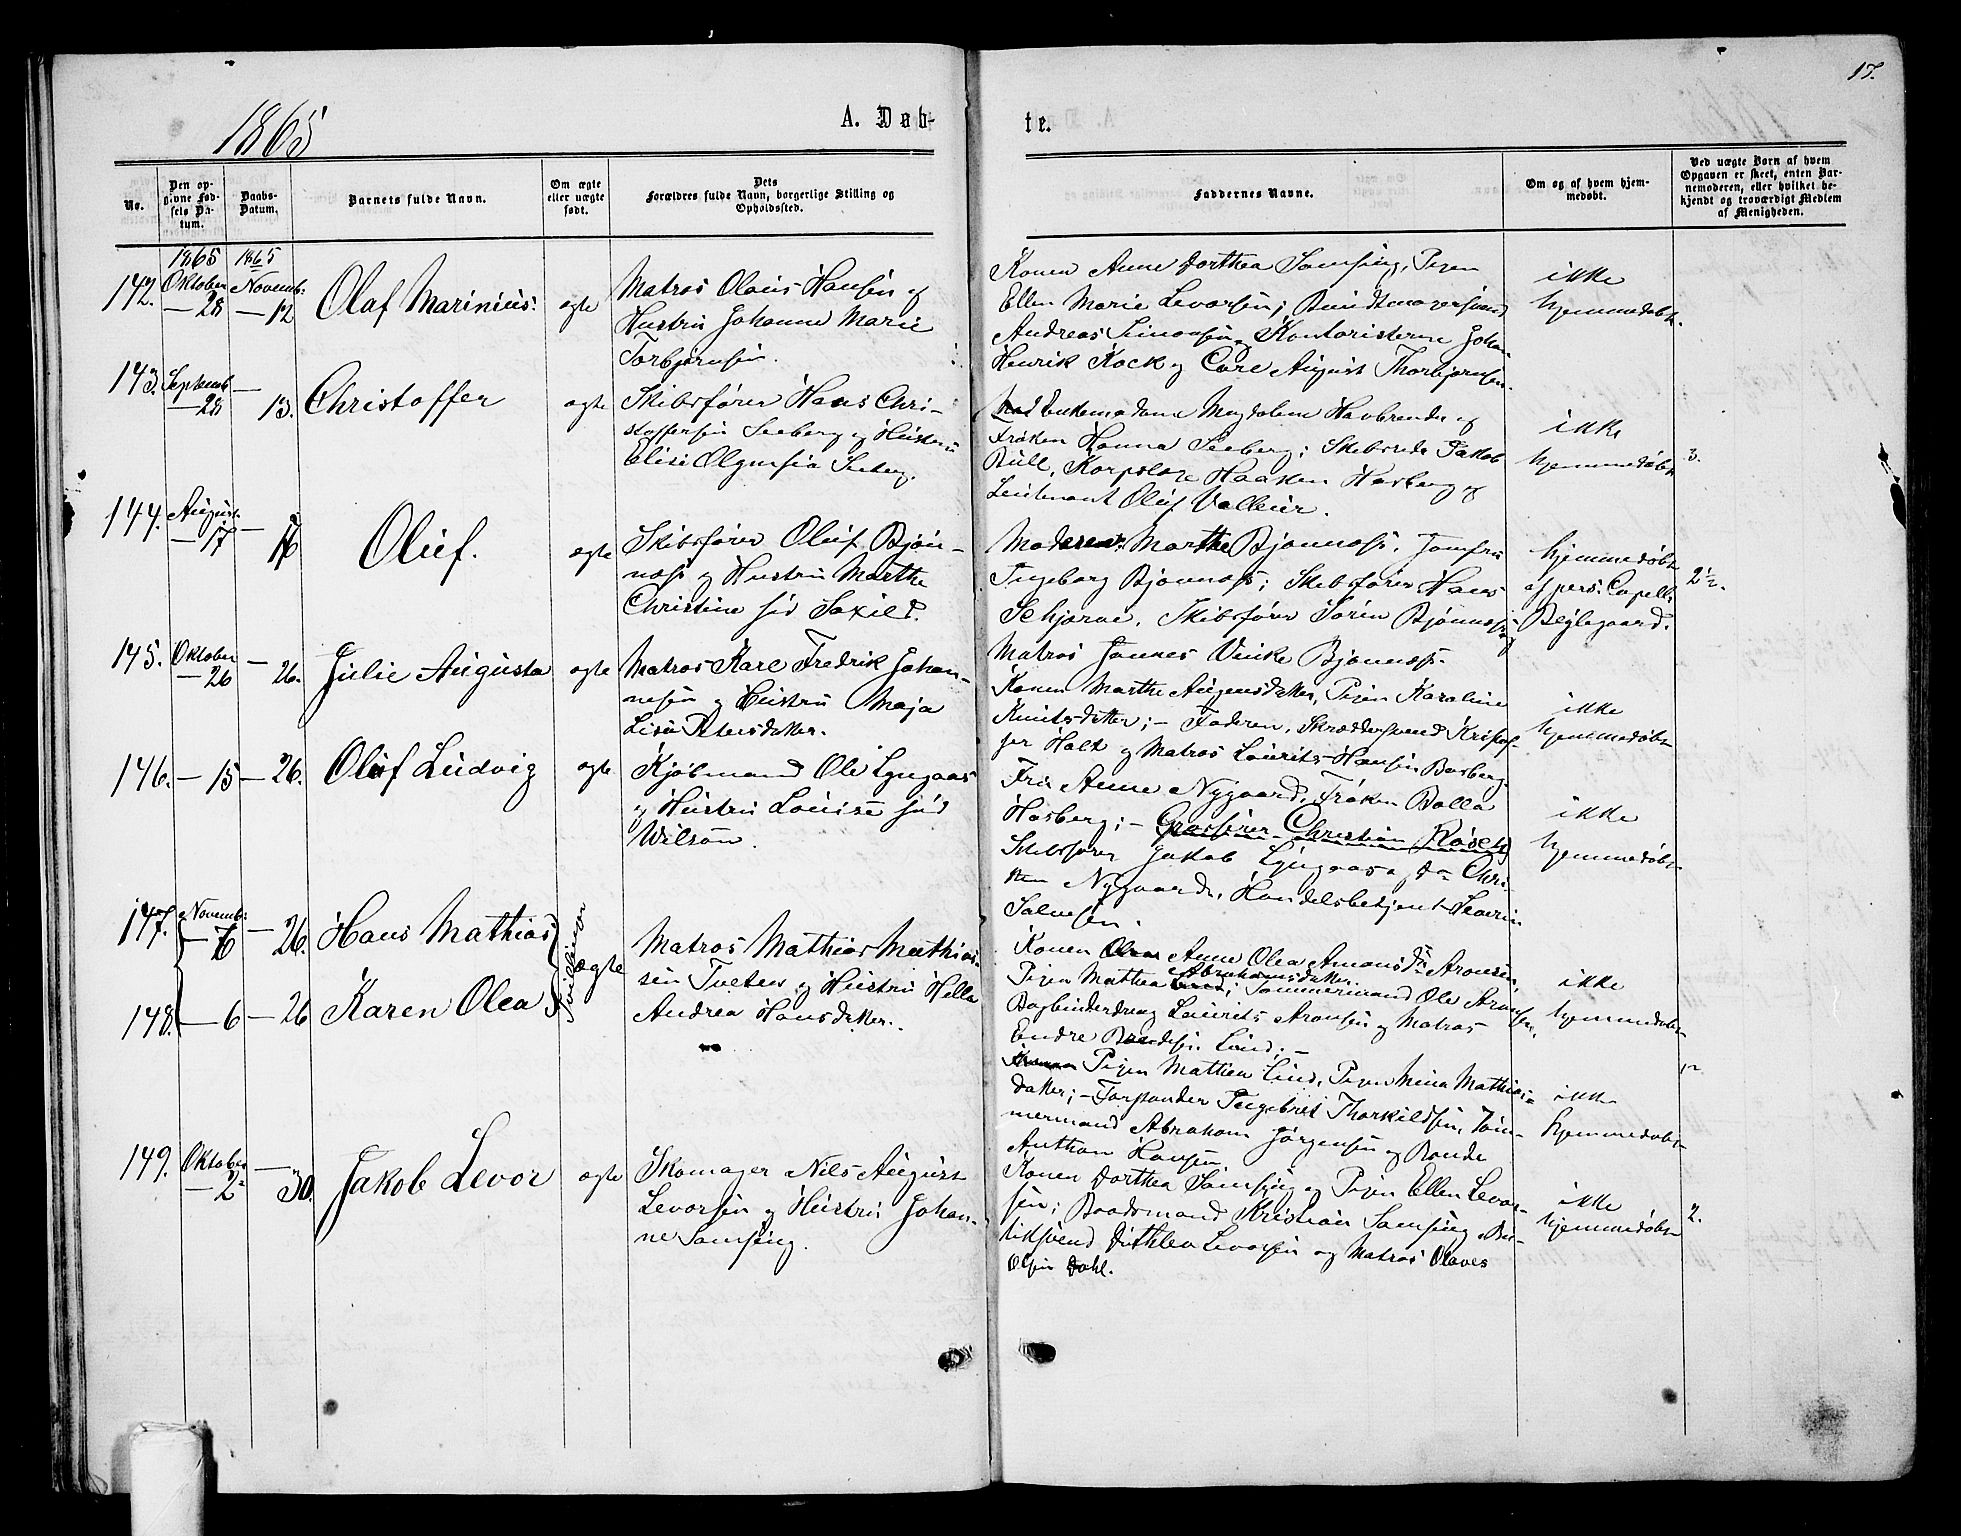 17.
1865
A. Døb-
te.
No.
Den op-
givne Fød-
sels Da-
tum.
Daabs-
Datum.
Barnets fulde Navn.
Om ægte
eller uægte
født.
Dets
Forældres fulde Navn, borgerlige Stilling og
Opholdssted.
Faddernes Navne.
Om og af hvem hjem-
medøbt.
Ved uægte Børn af hvem
Opgaven er skeet, enten Bar-
nemoderen, eller hvilket be-
kjendt og troværdigt Medlem
af Menigheden.
1865 1865
142. Oktober 28 Novemb: 12 Olaf Marinius. ægte
Matros Olaus Hansen og
Hustru Johanne Marie
Torbjørnsen.
Konen Anne Dorthea Samsing, Pigen
Ellen Marie Levorsen; Bundtmagersvend
Andreas Simonsen, Kontoristerne Johan
Henrik Kock og Carl August Thorbjørnsen.
ikke
hjemmedøbt.
143. Septemb 28 — 13. Christoffer ægte
Skibsfører Hans Chri-
stoffersen Seeberg og Hustru
Elise Olgensia Seeberg.
Enkemadame Magdalene Havbrende og
Frøken Hanna Seeberg; Skibsrede Jakob
Bull, Korpslæge Haaken Hasberg og
Leutenant Oluf Valleur.
ikke
hjemmedøbt
3.
144. August 17 — 16 Oluf. ægte
Skibsfører Oluf Bjøn-
næss og Hustru Marthe
Christine fød Saxild.
Moderen Marthe Bjønnæss, Jomfru
Ingeborg Bjønnæss; Skibsfører Hans
Schjerve, Skibsfører Søren Bjønnæss og
Matros Jannes Vinke Bjønnæss.
hjemmedøbt
af pers: Capell:
Bejlegaard.
2½.
145. Oktober 26 — 26. Julie Augusta ægte
Matros Karl Fredrik Johan-
nesen og Hustru Maja
Lisa Petersdatter.
Konen Marthe Augensdatter, Pigen Karoline
Knutsdatter; — Faderen, Skræddersvend Kristof-
fer Holt og Matros Laurits Hansen Barberg
ikke
hjemmedøbt
146. — 15 — 26. Oluf Ludvig ægte
Kjøbmand Ole Lyngaas
og Hustru Louise fød
Wilson.
Fru Anne Nygaard, Frøken Bolla
Hasberg; — Grosserer Christian Rosen
Skibsfører Jakob Lyngaas, do Chri-
sten Nygaard, Handelsbetjent Severin
Salvesen.
ikke
hjemmedøbt
147. Novemb: 6 — 26. Hans Mathias
148. — 6 — 26 Karen Olea
Tvillinger
ægte
Matros Mathias Mathias-
sen Tveten og Hustru Hella
Andrea Hansdatter.
Konen Anne Olea Amansdtr Aronsen,
Pigen Mathea Abrahamsdatter; Tømmermand Ole Aronsen,
Bogbinderdreng Laurits Aronsen og Matros
Endre Lind. —
ikke
hjemmedøbt
Pigen Mathea Lind, Pigen Mina Mathias-
datter; — Forstander Ingebret Thorkildsen, Töm-
mermand Abraham Jørgensen og Bonde
Anthon Hansen
ikke
hjemmedøbt
149. Oktober 2 — 30. Jakob Levor ægte
Skomager Nils August
Levorsen og Hustru Johan-
ne Samsing.
Konen Dorthea Samsing og Pigen Ellen Levor-
sen; Baadsmand Kristian Samsing, Bu-
tiksvend Dithlev Levorsen og Matros Olaves
Olsen Dahl.
ikke
hjemmedøbt
2.